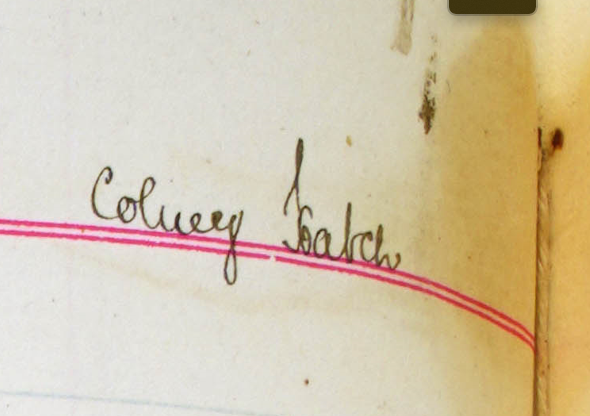 Colney Hatch